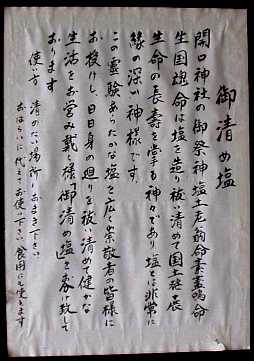 御清め塩
開口神社の御祭神塩土老翁命素盞嗚命
生国魂命は塩を造り祓い清めて国土経営
生命の長壽を掌る神々であり塩とは非常に
縁の深い神様です。
この霊験あらたかな塩を広く崇敬者の皆様に
お授けし、日日身の廻りを祓い清めて健かな
生活をお営み戴く様「御清め塩」をお頒け致して
おります
使い方 清めたい場所におまき下さい
おはらいに代えてお使い下さい 食用にも使えます